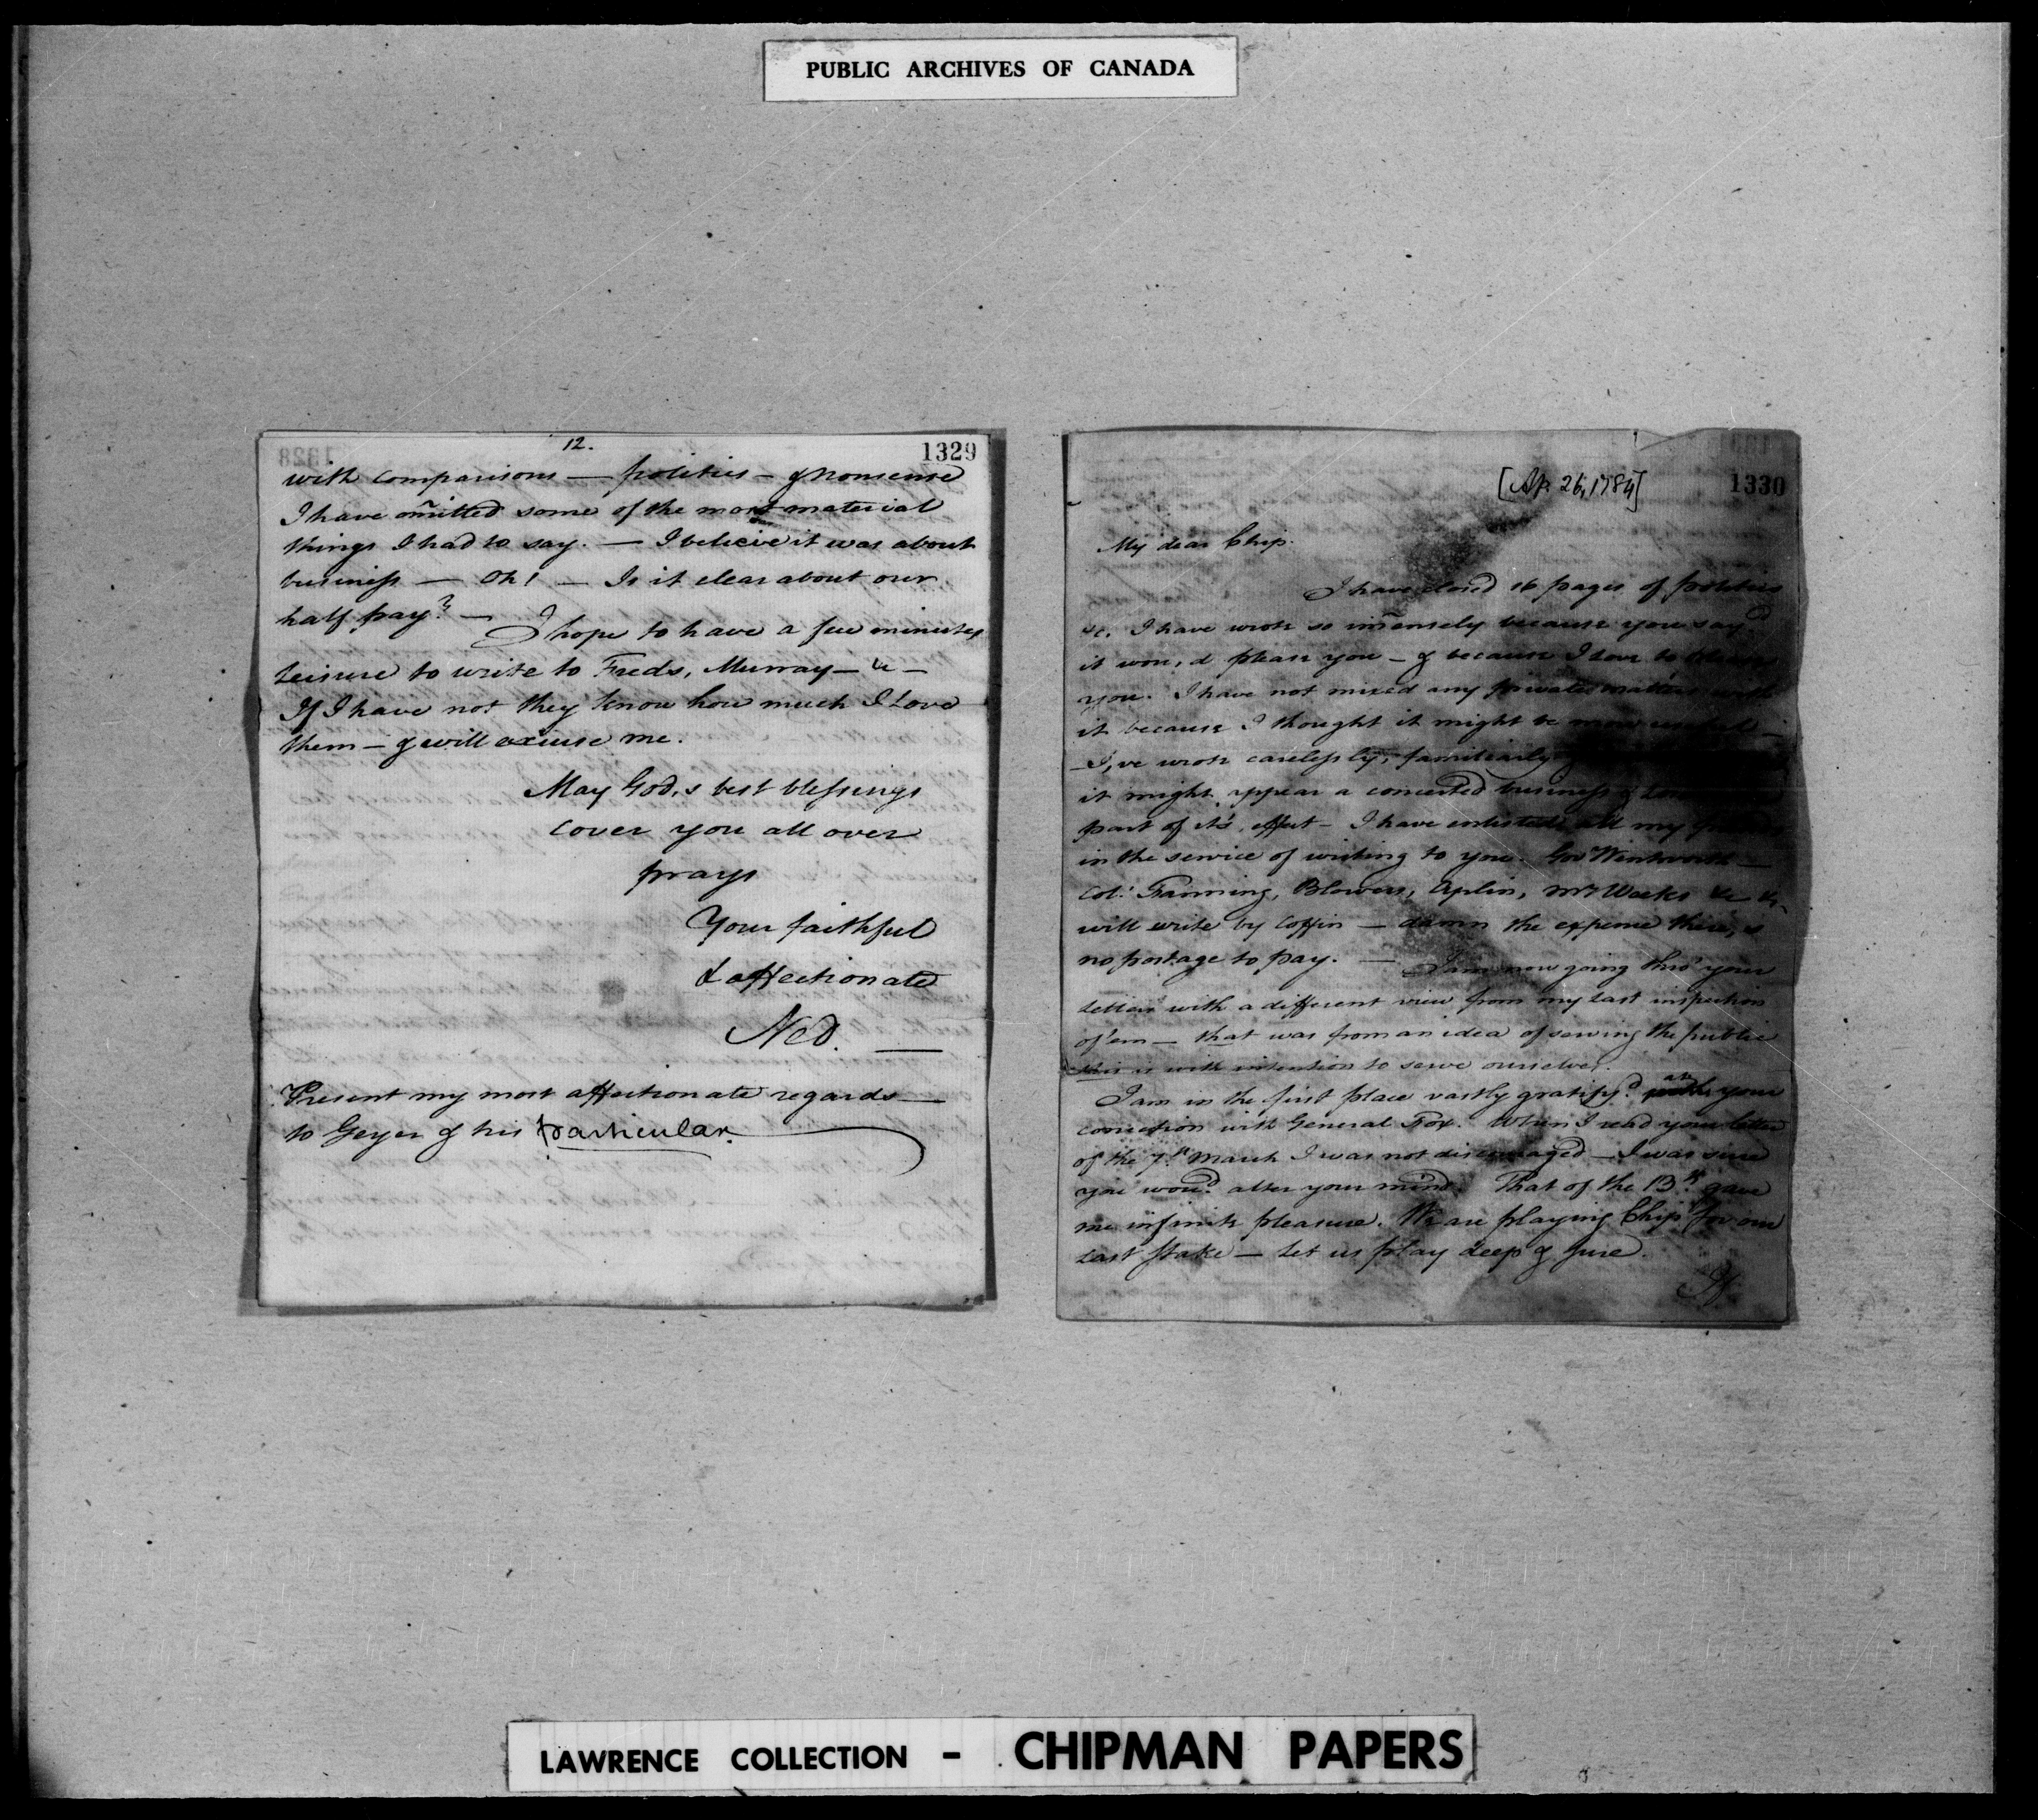 PUBLIC ARCHIVES OF CANADA
12.
1329
with comparisons — politics — & nonsense
I have omitted some of the most material
things I had to say. — I believe it was about
business — Oh! — Is it clear about our
half pay? —
I hope to have a few minutes
leisure to write to Freds, Murray — &c —
If I have not they know how much I Love
them — & will excuse me.
May God,s best blessings
cover you all over
prays
Your faithful
& affectionate
Ned. —
Present my most affectionate regards —
to Geyer & his particular.
[Ap. 26, 1784]
1330
My dear Chip.
I have closed 16 pages of politics
&c. I have wrote so immensely because you say'd
it wou,d please you — & because I love to please
you. I have not mixed any private matters with
it because I thought it might be more useful —
I,ve wrote carelessly, familiarly
it might appear a concerted business &
part of it's effect — I have enlisted all my
in the service of writing to you. Gov Wentworth —
Col: Fanning, Blowers, Aplin, Mr Weeks &c &c
will write by Coffin — damn the expense there,s
no postage to pay. — I am now going thro' your
letters with a different view from my last inspection
of'em — that was from an idea of serving the public
this is with intention to serve ourselves.
I am in the first place vastly gratify'd at your
connection with General Fox. When I read your letter
of the 7th March I was not discouraged — I was sure
you wou'd alter your mind. That of the 13th gave
me infinite pleasure. We are playing Chip for our
last stake — let us play deep & sure.
If
LAWRENCE COLLECTION - CHIPMAN PAPERS